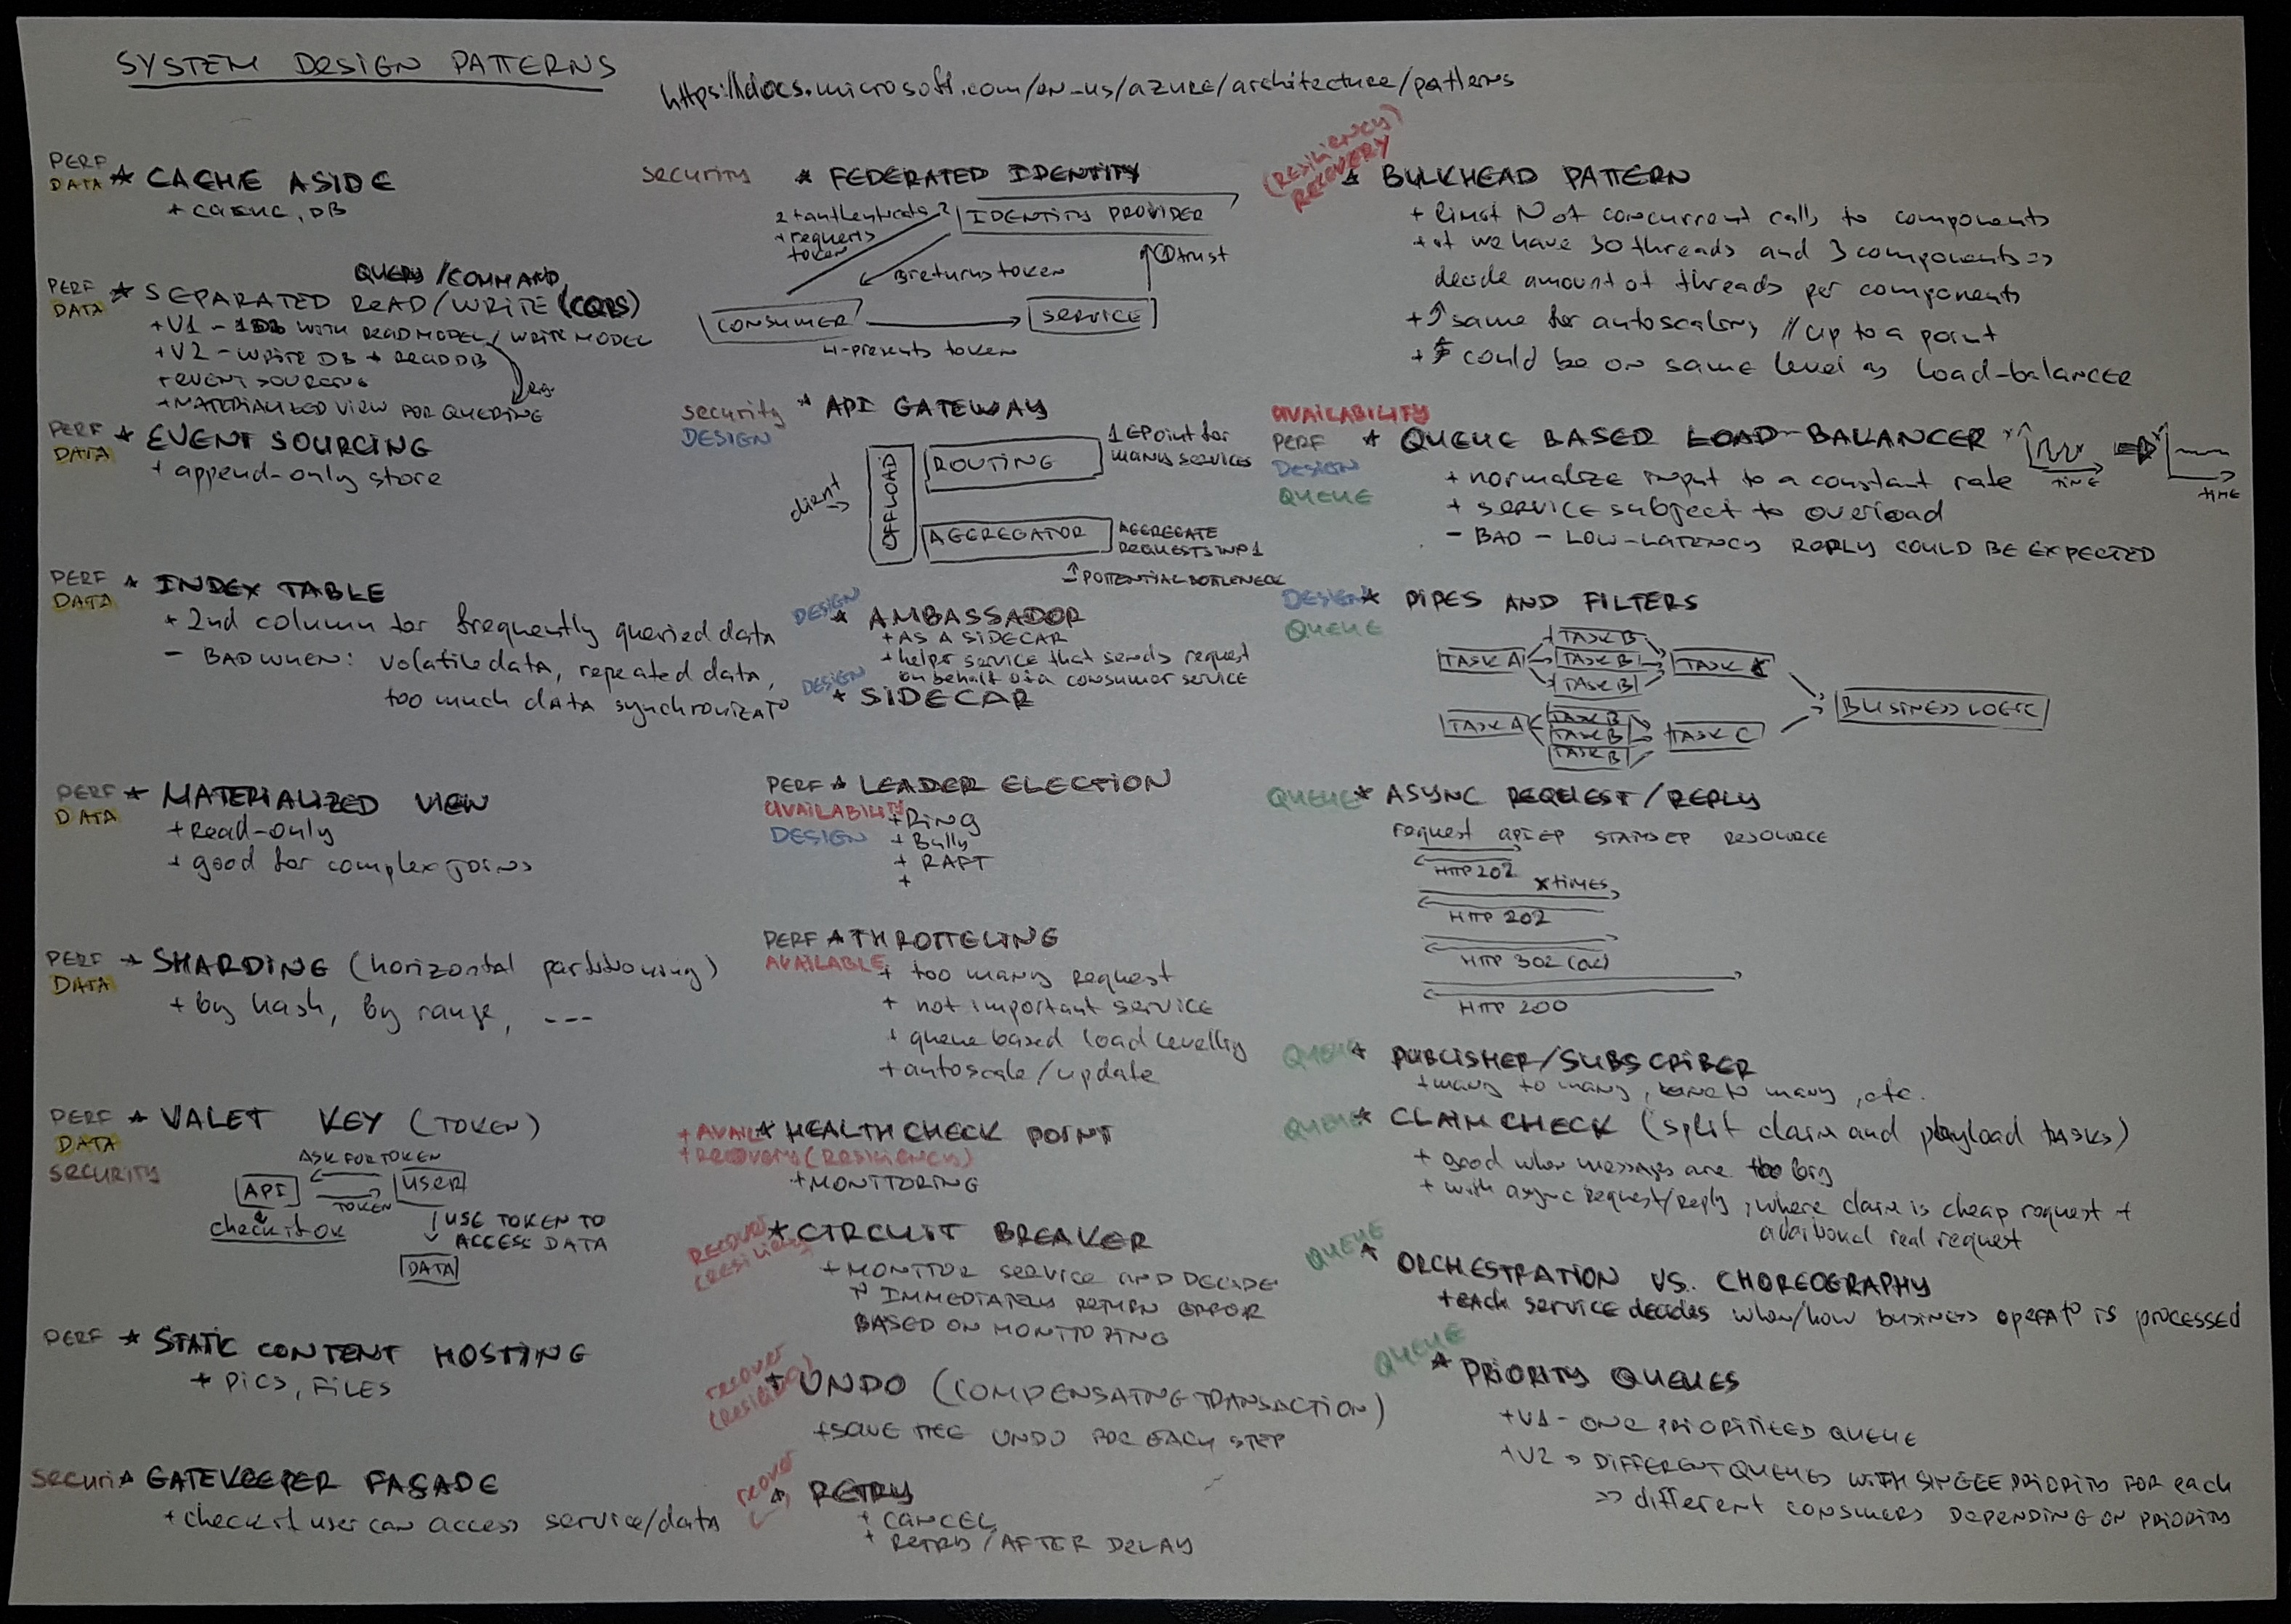 SYSTEM DESIGN PATTERNS
https://docs.microsoft.com/en-us/azure/architecture/patterns
PERF
DATA
* CACHE ASIDE
+ cache, DB
PERF
DATA
QUERY/COMMAND
* SEPARATED READ/WRITE (CQRS)
+ V1 - 1DB WITH READ MODEL/WRITE MODEL
+ V2 - WRITE DB + READ DB
+ EVENT SOURCING
e.g.
+ MATERIALIZED VIEW FOR QUERING
PERF
DATA
* EVENT SOURCING
+ append-only store
PERF
DATA
* INDEX TABLE
+ 2nd column for frequently queried data
- BAD WHEN: volatile data, repeated data,
too much data synchronizat°
PERF
DATA
* MATERIALIZED VIEW
+ Read-only
+ good for complex joins
PERF
DATA
* SHARDING (horizontal partitioning)
+ by hash, by range, ---
PERF
DATA
SECURITY
* VALET KEY (TOKEN)
ASK FOR TOKEN
API
USER
TOKEN
check it ok
USE TOKEN TO
ACCESS DATA
DATA
PERF
* STATIC CONTENT HOSTING
+ PICS, FILES
SECURI
* GATEKEEPER FAÇADE
+ check if user can access service/data
SECURITY
* FEDERATED IDENTITY
2 + authenticate
+ requests
token
IDENTITY PROVIDER
3 returns token
① trust
CONSUMER
SERVICE
4-presents token
SECURITY
DESIGN
* API GATEWAY
client
OFFLOAD
ROUTING
1 EPoint for
many services
AGGREGATOR
AGGREGATE
REQUESTS INTO 1
↑ POTENTIAL BOTLENECK
DESIGN
* AMBASSADOR
+ AS A SIDECAR
+ helper service that sends request
on behalf of a consumer service
DESIGN
* SIDECAR
PERF
AVAILABILITY
DESIGN
* LEADER ELECTION
+ Ring
+ Bully
+ RAFT
+
PERF
AVAILABLE
* THROTTELING
+ too many request
+ not important service
+ queue based load levelling
+ autoscale/update
+ AVAIL
+ RECOVERY (RESILIENCY)
* HEALTH CHECK POINT
+ MONITORING
RECOVER
(RESILIENCY
* CIRCUIT BREAKER
+ MONITOR SERVICE AND DECIDE
IMMEDIATELY RETURN ERROR
BASED ON MONITORING
recover
* UNDO (COMPENSATING TRANSACTION)
+ SAVE THE UNDO FOR EACH STEP
recover
* RETRY
+ CANCEL
+ RETRY/AFTER DELAY
(RESILIENCY)
RECOVERY
* BULKHEAD PATTERN
+ limit N of concurrent calls to components
+ if we have 30 threads and 3 components =>
decide amount of threads per components
+ ↑ same for autoscaling // up to a point
+ could be on same level as load-balancer
AVAILABILITY
PERF
DESIGN
QUEUE
* QUEUE BASED LOAD-BALANCER
TIME
TIME
+ normalize input to a constant rate
+ service subject to overload
- BAD - LOW-LATENCY REPLY COULD BE EXPECTED
DESIGN
QUEUE
* PIPES AND FILTERS
TASK A
TASK B
TASK B
TASK B
TASK C
TASK A
TASK B
TASK B
TASK B
TASK C
BUSINESS LOGIC
QUEUE
* ASYNC REQUEST/REPLY
request api EP STATUS EP RESOURCE
HTTP 202
X times
HTTP 202
HTTP 302 (ok)
HTTP 200
QUEUE
* PUBLISHER/SUBSCRIBER
+ many to many, one to many, etc.
QUEUE
* CLAIM CHECK (split claim and payload tasks)
+ good when messages are too big
+ with async request/reply, where claim is cheap request +
additional real request
QUEUE
* ORCHESTRATION VS. CHOREOGRAPHY
+ each service decides when/how business operat° is processed
QUEUE
* PRIORITY QUEUES
+ V1 - ONE PRIORITIZED QUEUE
+ V2 => DIFFERENT QUEUES WITH SINGLE PRIORITY FOR each
=> different consumers DEPENDING ON PRIORITY